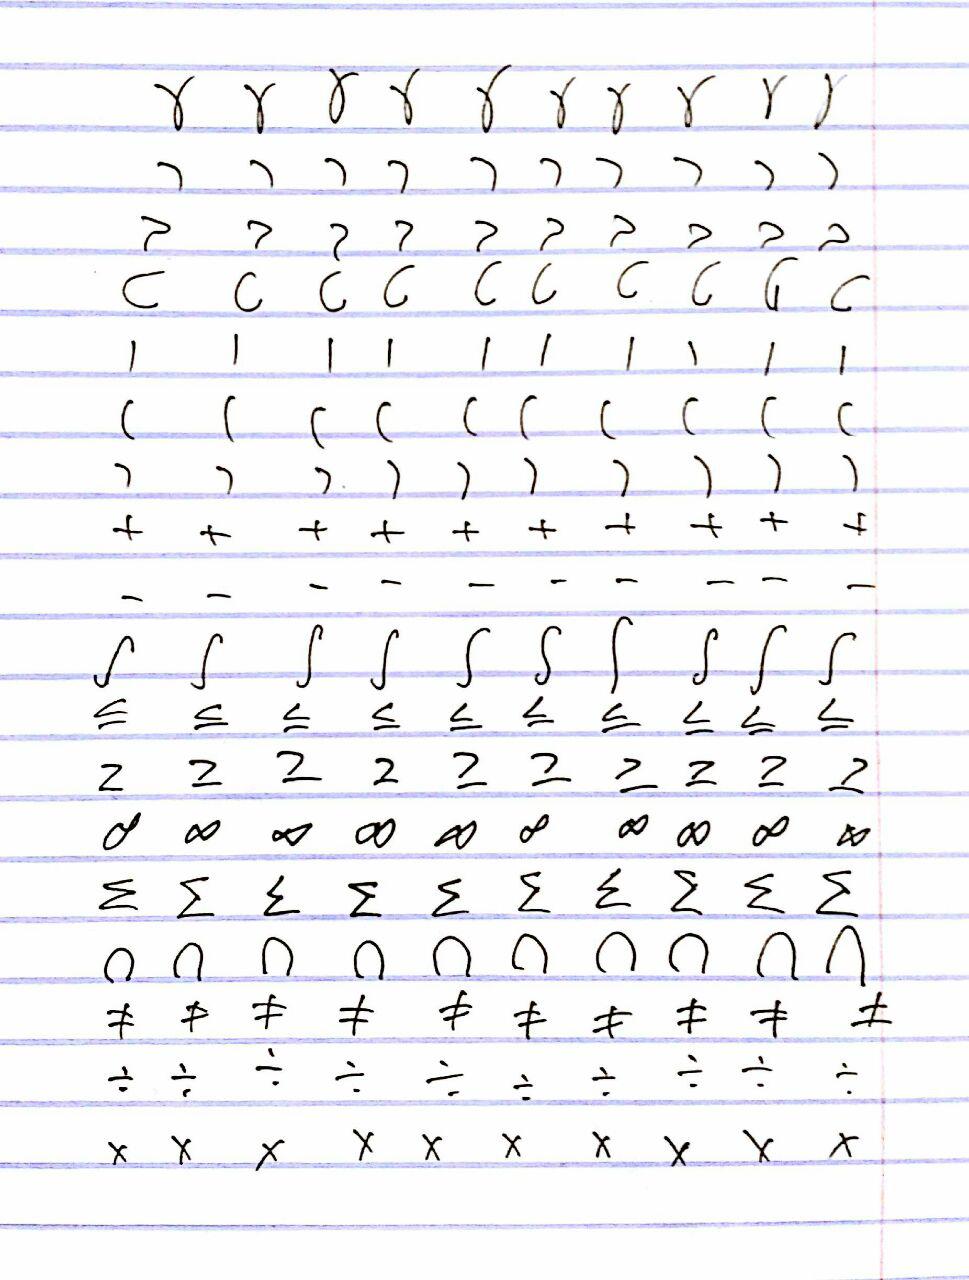 γ γ γ γ γ γ γ γ γ γ
⊂ ⊂ ⊂ ⊂ ⊂ ⊂ ⊂ ⊂ ⊂ ⊂
| | | | | | | | | |
( ( ( ( ( ( ( ( ( (
) ) ) ) ) ) ) ) ) )
+ + + + + + + + + +
- - - - - - - - - -
∫ ∫ ∫ ∫ ∫ ∫ ∫ ∫ ∫ ∫
≤ ≤ ≤ ≤ ≤ ≤ ≤ ≤ ≤ ≤
≥ ≥ ≥ ≥ ≥ ≥ ≥ ≥ ≥ ≥
∞ ∞ ∞ ∞ ∞ ∞ ∞ ∞ ∞ ∞
Σ Σ Σ Σ Σ Σ Σ Σ Σ Σ
∩ ∩ ∩ ∩ ∩ ∩ ∩ ∩ ∩ ∩
≠ ≠ ≠ ≠ ≠ ≠ ≠ ≠ ≠ ≠
÷ ÷ ÷ ÷ ÷ ÷ ÷ ÷ ÷ ÷
× × × × × × × × × ×